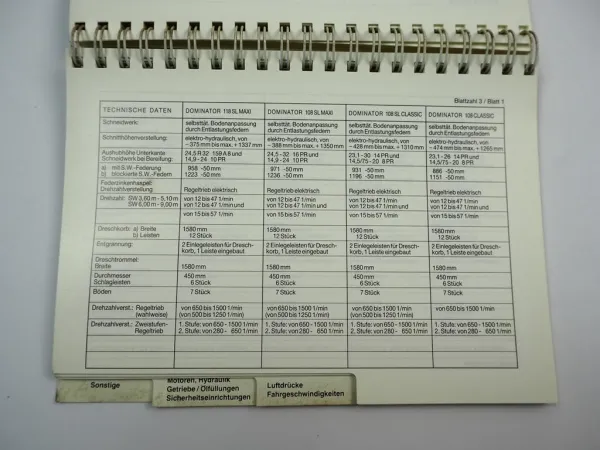 Blattzahl 3 / Blatt 1
TECHNISCHE DATEN DOMINATOR 118 SL MAXI DOMINATOR 108 SL MAXI DOMINATOR 108 SL CLASSIC DOMINATOR 108 CLASSIC
Schneidwerk: selbsttät. Bodenanpassung selbsttät. Bodenanpassung selbsttät. Bodenanpassung selbsttät. Bodenanpassung
durch Entlastungsfedern durch Entlastungsfedern durch Entlastungsfedern durch Entlastungsfedern
Schnitthöhenverstellung: elektro-hydraulisch, von elektro-hydraulisch, von elektro-hydraulisch, von elektro-hydraulisch, von
– 375 mm bis max. + 1337 mm – 388 mm bis max. + 1350 mm – 428 mm bis max. + 1310 mm – 474 mm bis max. + 1265 mm
Aushubhöhe Unterkante 24,5 R 32 159 A 8 und 24,5-32 16 PR und 23,1-30 14 PR und 23,1-26 14 PR und
Schneidwerk bei Bereifung: 14,9-24 10 PR 14,9-24 10 PR 14,5/75-20 8 PR 14,5/75-20 8 PR
a) mit S.W.-Federung 958 -50 mm 971 -50 mm 931 -50 mm 886 -50 mm
b) blockierte S.W.-Federn 1223 -50 mm 1236 -50 mm 1196 -50 mm 1151 -50 mm
Federzinkenhaspel:
Drehzahlverstellung: Regeltrieb elektrisch Regeltrieb elektrisch Regeltrieb elektrisch Regeltrieb elektrisch
Drehzahl: SW 3,60 m - 5,10 m von 12 bis 47 1/min von 12 bis 47 1/min von 12 bis 47 1/min von 12 bis 47 1/min
SW 6,00 m - 9,00 m von 12 bis 47 1/min und von 12 bis 47 1/min und von 12 bis 47 1/min und von 12 bis 47 1/min und
von 15 bis 57 1/min von 15 bis 57 1/min von 15 bis 57 1/min von 15 bis 57 1/min
Dreschkorb: a) Breite 1580 mm 1580 mm 1580 mm 1580 mm
b) Leisten 12 Stück 12 Stück 12 Stück 12 Stück
Entgrannung: 2 Einlegeleisten für Dresch- 2 Einlegeleisten für Dresch- 2 Einlegeleisten für Dresch- 2 Einlegeleisten für Dresch-
korb, 1 Leiste eingebaut korb, 1 Leiste eingebaut korb, 1 Leiste eingebaut korb, 1 Leiste eingebaut
Dreschtrommel:
Breite 1580 mm 1580 mm 1580 mm 1580 mm
Durchmesser 450 mm 450 mm 450 mm 450 mm
Schlagleisten 6 Stück 6 Stück 6 Stück 6 Stück
Böden 7 Stück 7 Stück 7 Stück 7 Stück
Drehzahlverst.: Regeltrieb von 650 bis 1500 1/min von 650 bis 1500 1/min von 650 bis 1500 1/min von 650 bis 1500 1/min
(wahlweise) (von 500 bis 1250 1/min) (von 500 bis 1250 1/min) (von 500 bis 1250 1/min) (von 500 bis 1250 1/min)
Drehzahlverst.: Zweistufen- 1. Stufe: von 650 - 1500 1/min 1. Stufe: von 650 - 1500 1/min 1. Stufe: von 650 - 1500 1/min 1. Stufe: von 650 - 1500 1/min
Regeltrieb 2. Stufe: von 280 - 650 1/min 2. Stufe: von 280 - 650 1/min 2. Stufe: von 280 - 650 1/min 2. Stufe: von 280 - 650 1/min
Sonstige
Motoren, Hydraulik
Getriebe / Ölfüllungen
Sicherheitseinrichtungen
Luftdrücke
Fahrgeschwindigkeiten